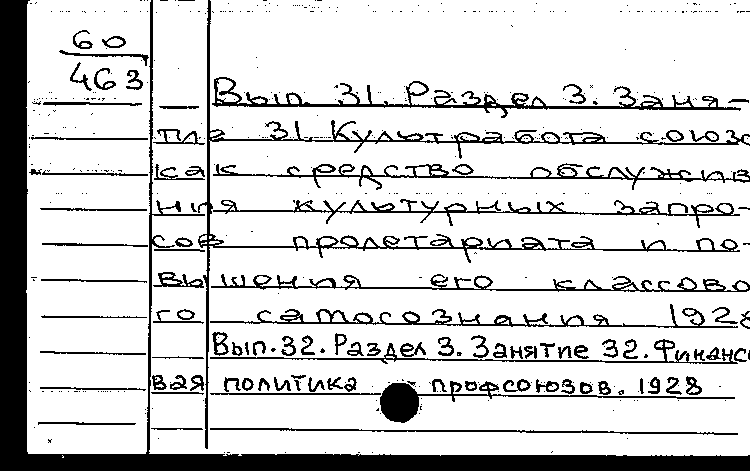 60
463
Вып. 31. Раздел 3. Заня-
тие 31. Культработа союзо
как средство обслужив
ния культурных запро-
сов пролетариата и по-
вышения его классово
го самосознания 1928
Вып. 32. Раздел 3. Занятие 32. Финансо
вая политика профсоюзов. 1928